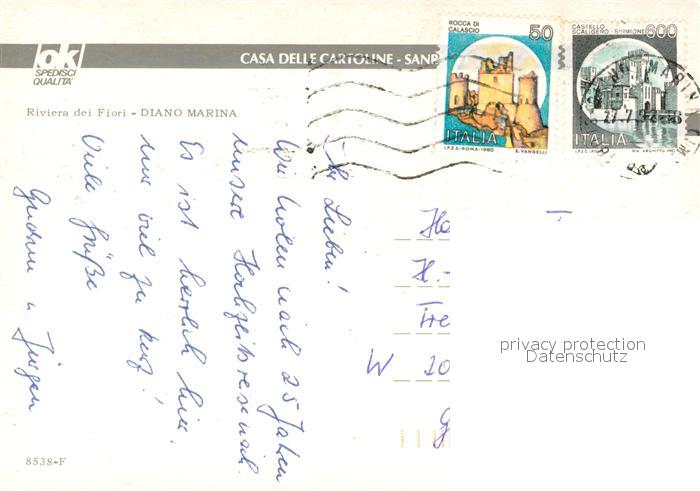 ok
SPEDISCI
QUALITA'
CASA DELLE CARTOLINE - SANR
ROCCA DI
CALASCIO
50
ITALIA
I.P.Z.S.-ROMA-1980
E. VANGELLI
CASTELLO
SCALIGERO - SIRMIONE
600
ITALIA
Riviera dei Fiori - DIANO MARINA
Ihr Lieben!
Wir holen nach 25 Jahren
unsere Hochzeitsreise nach.
Es ist herrlich hier,
nur viel zu kurz!
Viele Grüße
Gudrun u. Jürgen
Ha
H.-
Fre
W 20
8538-F
privacy protection
Datenschutz